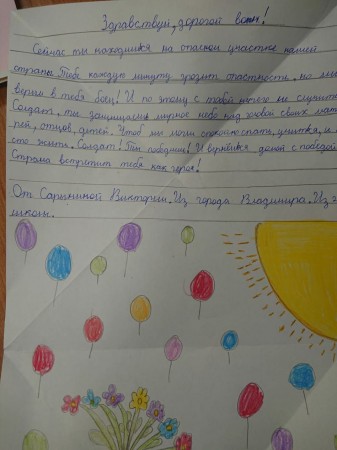 Здравствуй, дорогой воин!
Сейчас ты находишся на опасном участке нашей
страны. Тебе каждую минуту грозит опастность, но мы
верим в тебя боец! И по этому с тобой ничего не случится
Солдат, ты защищаешь мирное небо над головой своих мате
рей, отцов, детей. Чтоб мы могли спокойно спать, учится, и
сто жить. Солдат! Ты победишь! И вернёшся домой с победой
Страна встретит тебя как героя!
От Сарыниной Виктории. Из города Владимира. Из
школы.